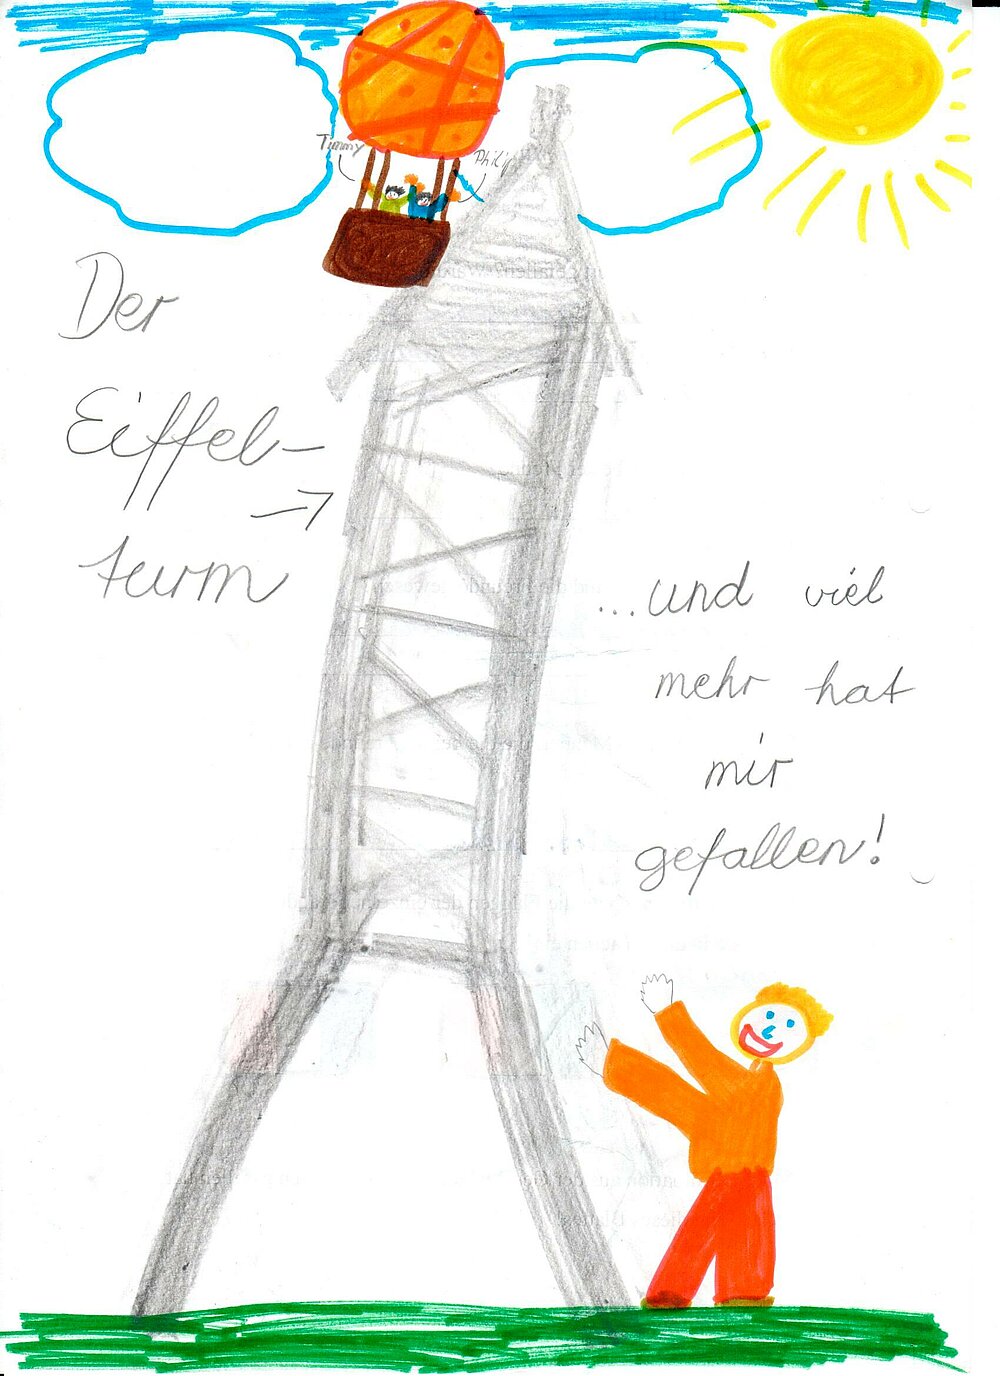 Timmy
Der
Eiffel-
turm
...und viel
mehr hat
mir
gefallen!